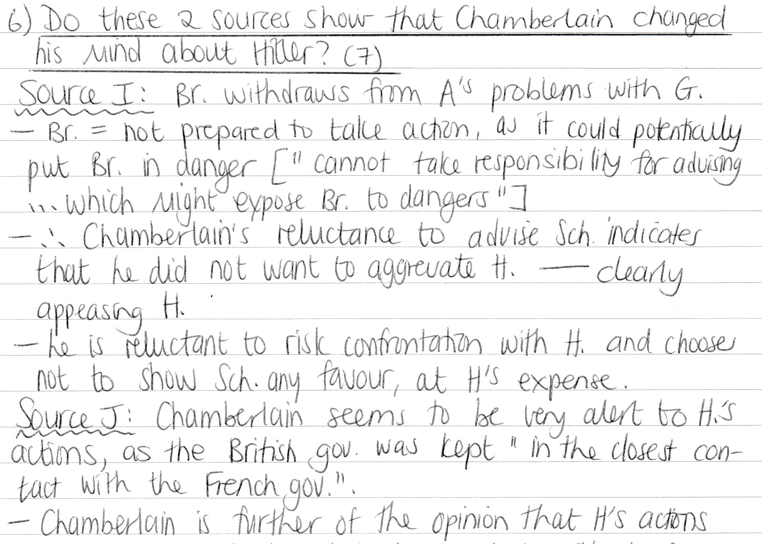 6) Do these 2 sources show that Chamberlain changed
his mind about Hitler? (7)
Source I: Br. withdraws from A's problems with G.
- Br. = not prepared to take action, as it could potentially
put Br. in danger [" cannot take responsibility for advising
... which might expose Br. to dangers"]
- ∴ Chamberlain's reluctance to advise Sch. indicates
that he did not want to aggrevate H. — clearly
appeasing H.
- he is reluctant to risk confrontation with H. and choose
not to show Sch. any favour, at H's expense.
Source J: Chamberlain seems to be very alert to H.'s
actions, as the British gov. was kept " in the closest con-
tact with the French gov.".
- Chamberlain is further of the opinion that H's actions